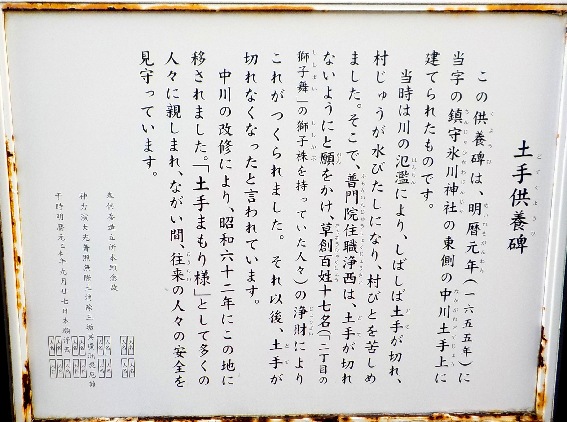 土手供養碑
この供養碑は、明暦元年(一六五五年)に
当字の鎮守氷川神社の東側の中川土手上に
建てられたものです。
当時は川の氾濫により、しばしば土手が切れ、
村じゅうが水びたしになり、村びとを苦しめ
ました。そこで、普門院住職浄西は、土手が切れ
ないようにと願をかけ、草創百姓十七名(「二丁目の
獅子舞」の獅子株を持っていた人々)の浄財により
これがつくられました。それ以後、土手が
切れなくなったと言われています。
中川の改修により、昭和六十二年にこの地に
移されました。「土手まもり様」として多くの
人々に親しまれ、ながい間、往来の人々の安全を
見守っています。